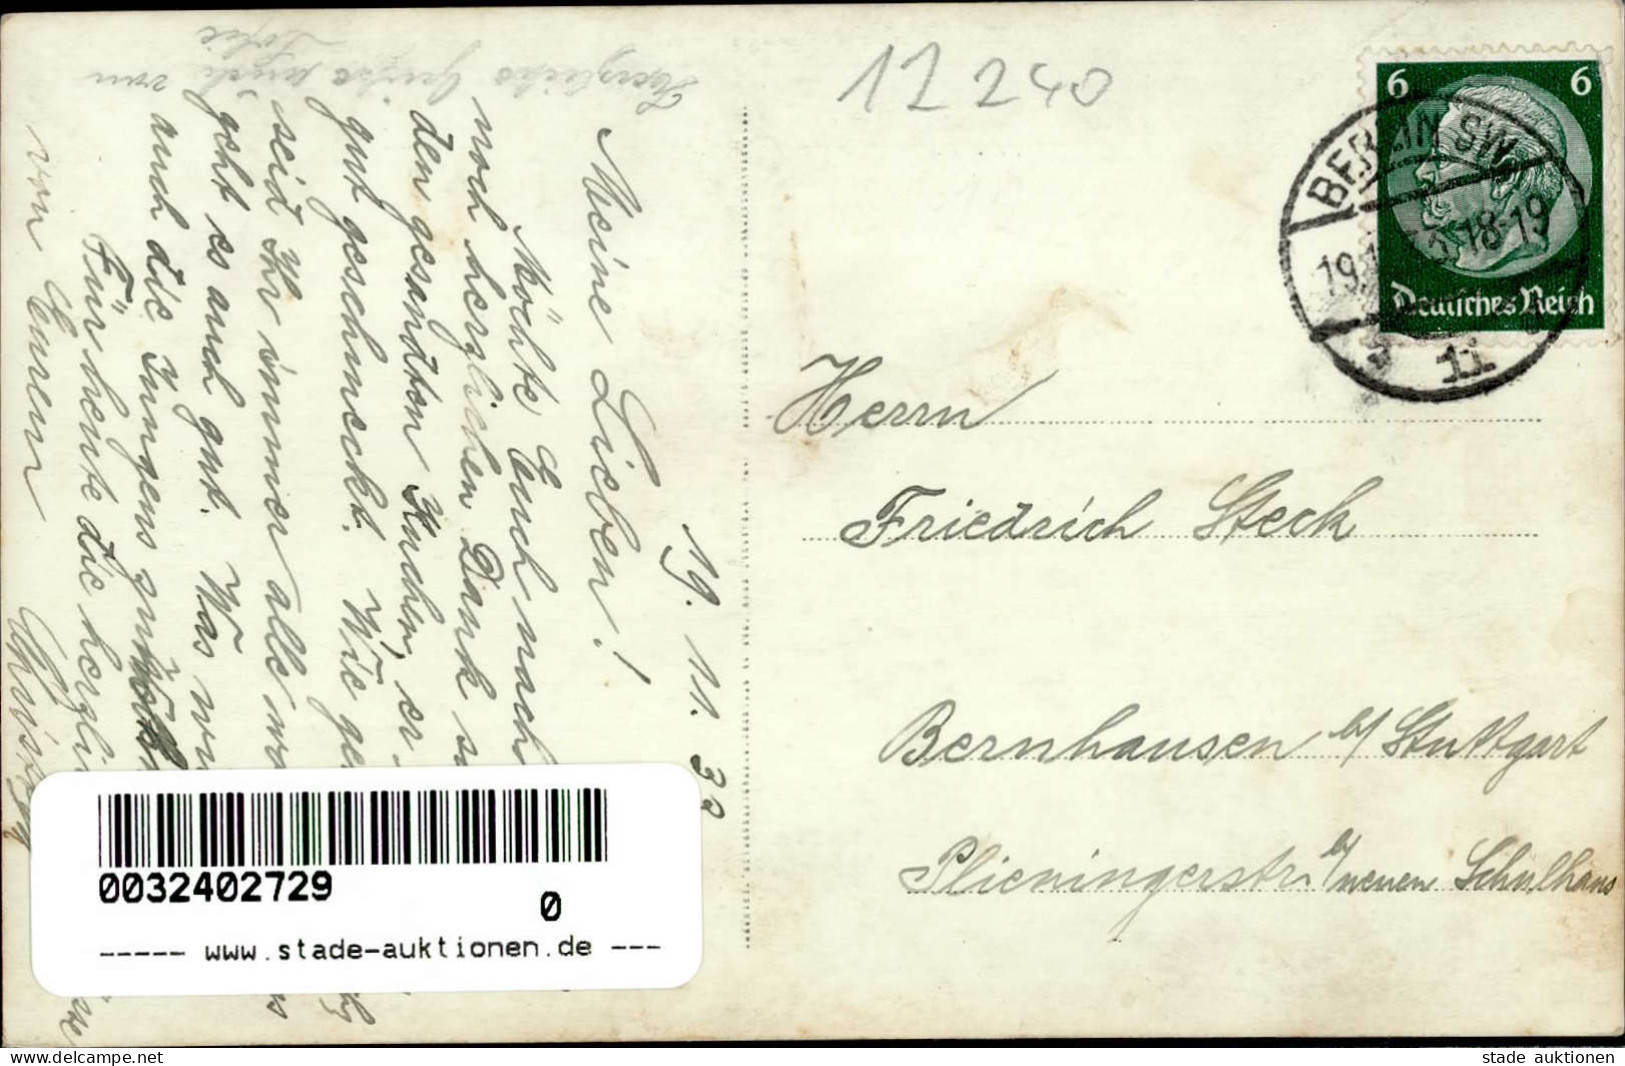 12 240
6 6
BERLIN SW
18-19
Deutsches Reich
11
Herrn
Friedrich Steck
Bernhausen b/ Stuttgart
Plieningerstr. b/ neuen Schulhaus
19. 11. 33
Meine Lieben!
Möchte Euch nach
noch herzlichen Dank
den gesandten Kuchen, er
gut geschmeckt. Wie
seid Ihr immer alle
geht es auch gut. Was
auch die Jungens
Für heute die
von Euren
Herzliche Grüße
von
Sofie
0032402729
0
----- www.stade-auktionen.de ---
www.delcampe.net
stade auktionen